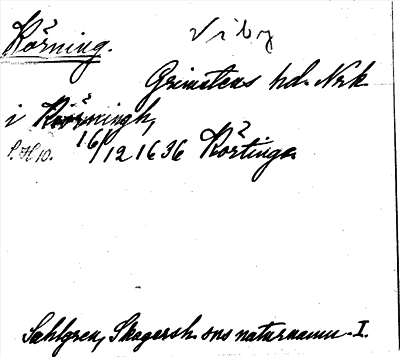 Körning. Viby
Grimstens hd. Nrk
i Körningh,
S.H 10. 16/12 1636 Kortinge
Sahlgren, Skagersh. sns naturnamn I.